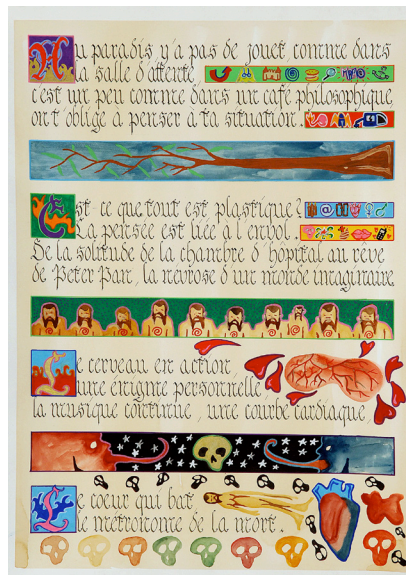 Au paradis y'a pas de jouet, comme dans
la salle d'attente,
c'est un peu comme dans un café philosophique
ont oblige à penser à ta situation.
Est-ce que tout est plastique?
@
La pensée est liée à l'envol.
De la solitude de la chambre d'hôpital au rêve
de Peter Pan, la nevrose d'un monde imaginaire
Le cerveau en action
une énigme personnelle
la musique continue, une courbe cardiaque,
Le coeur qui bat,
le métronome de la mort.